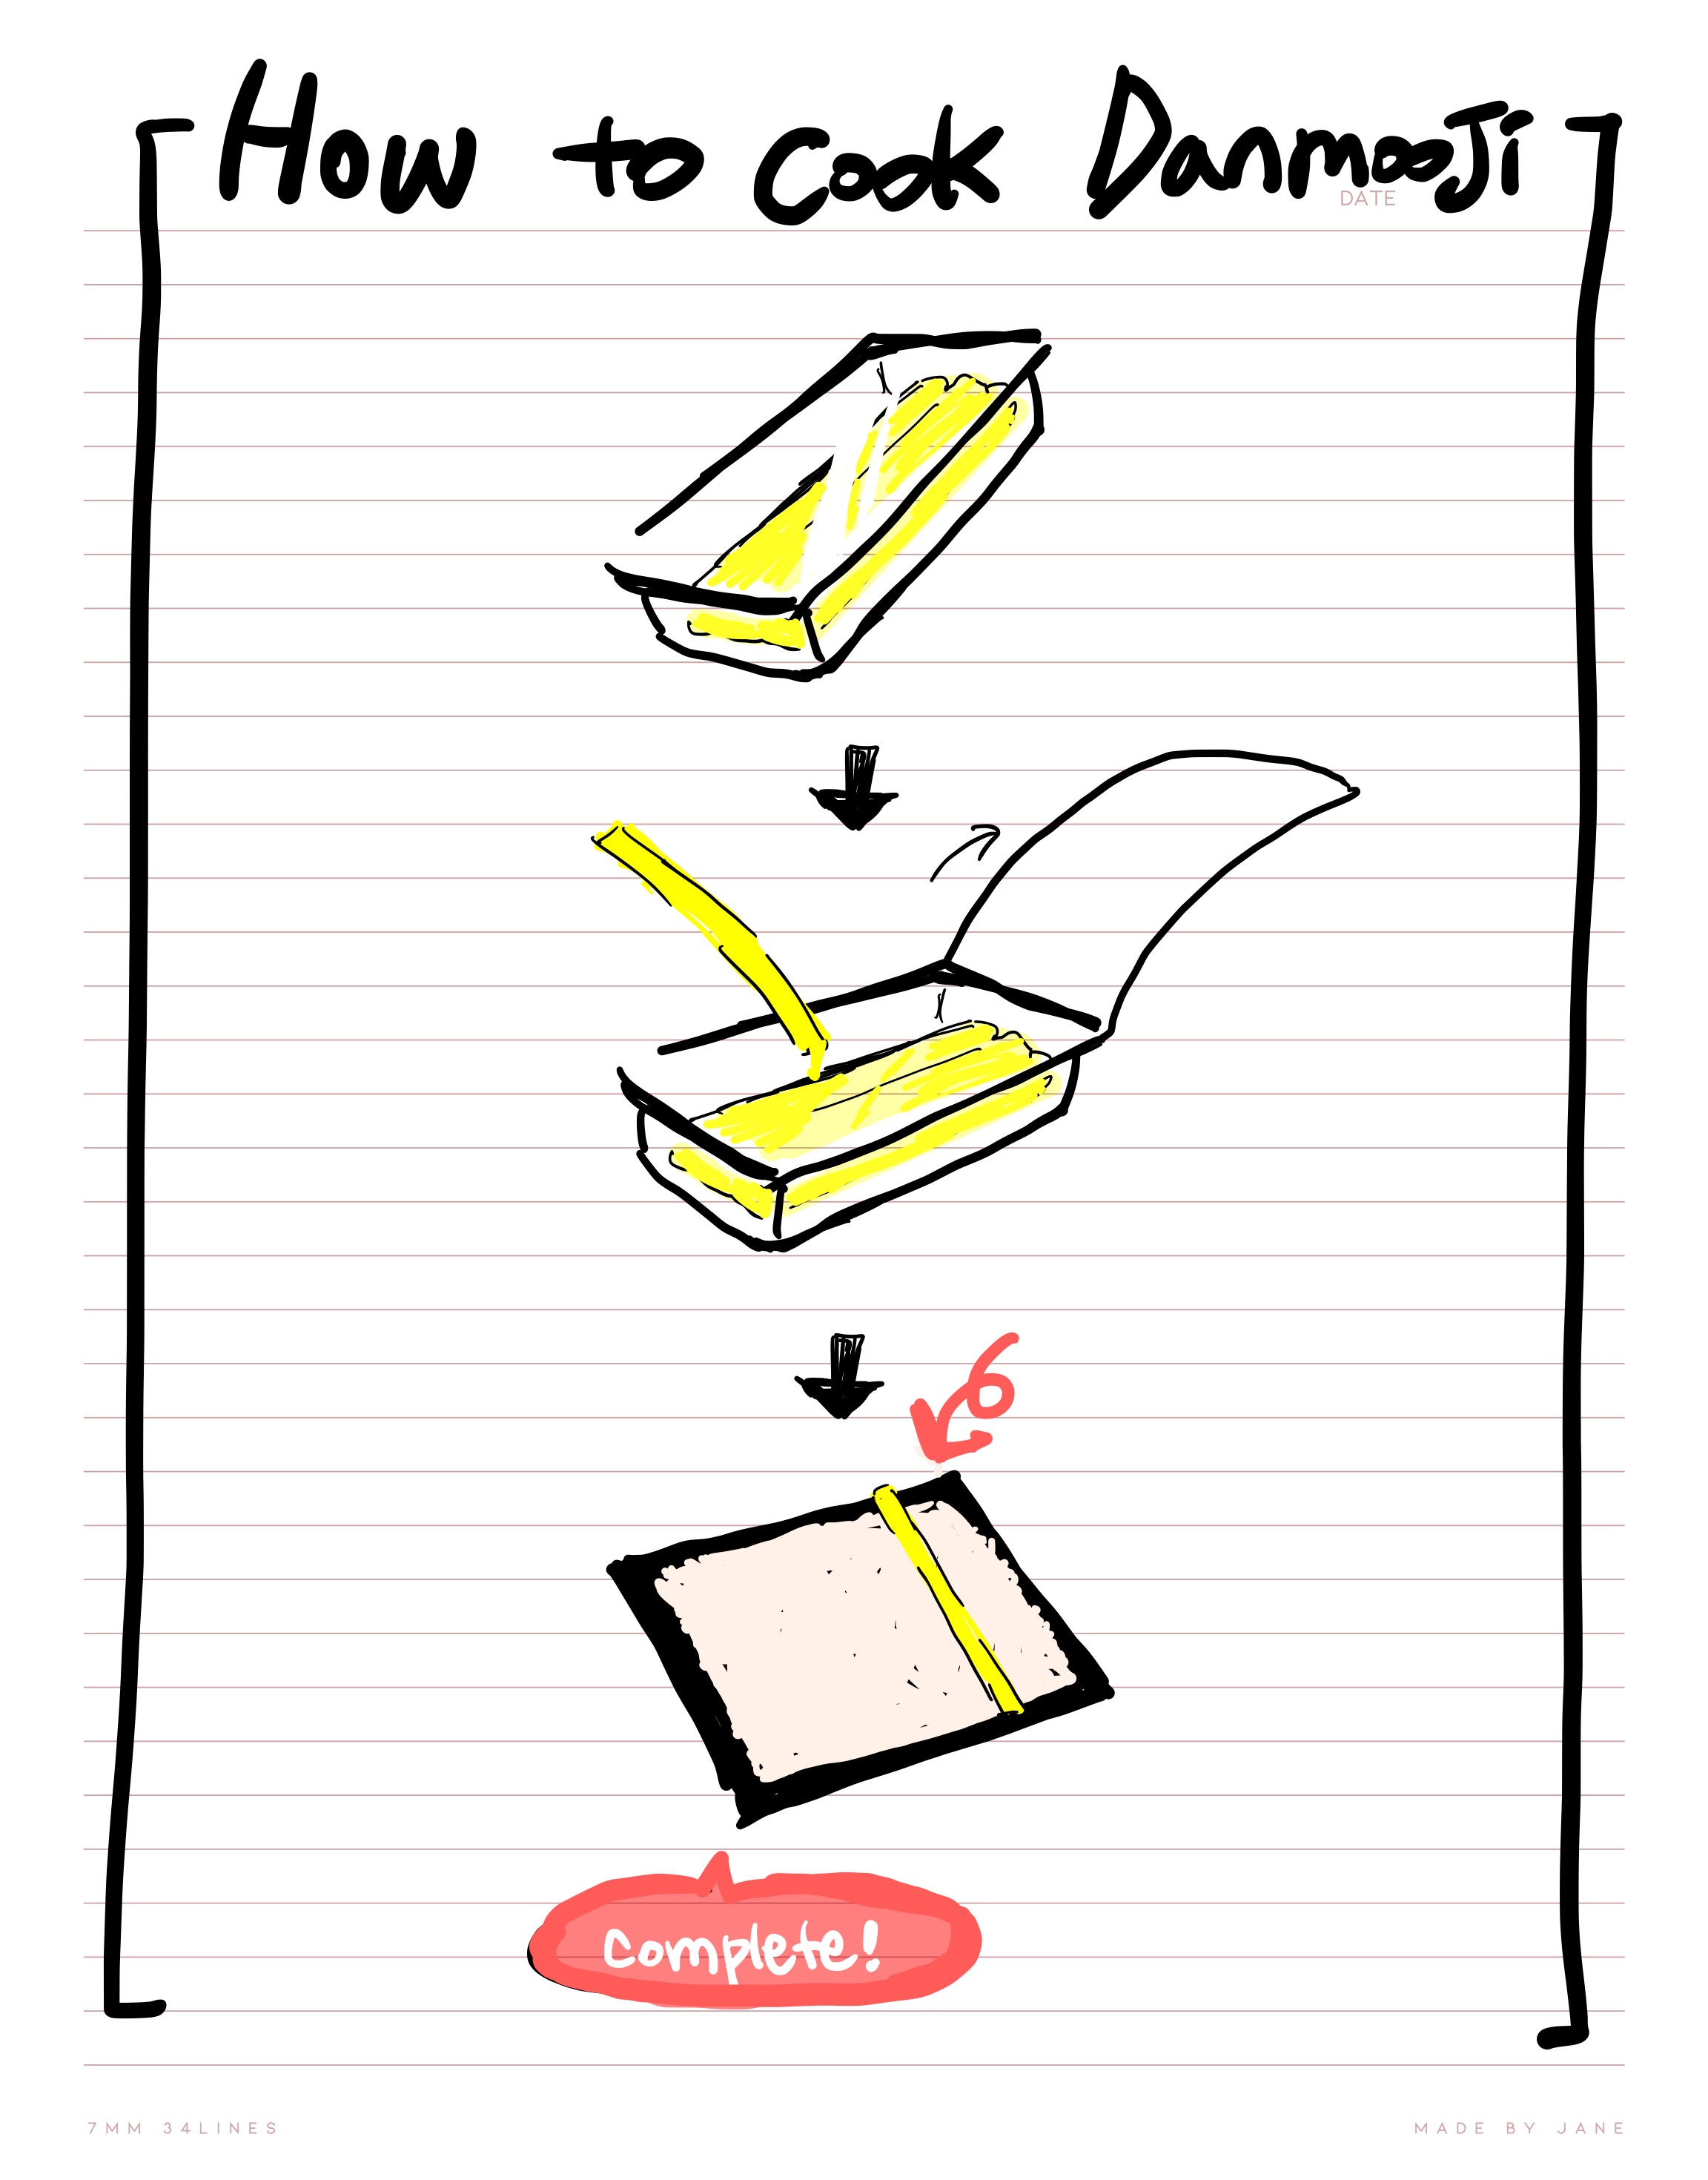 How to cook Danmooji
DATE
complete!
7MM 34LINES
MADE BY JANE